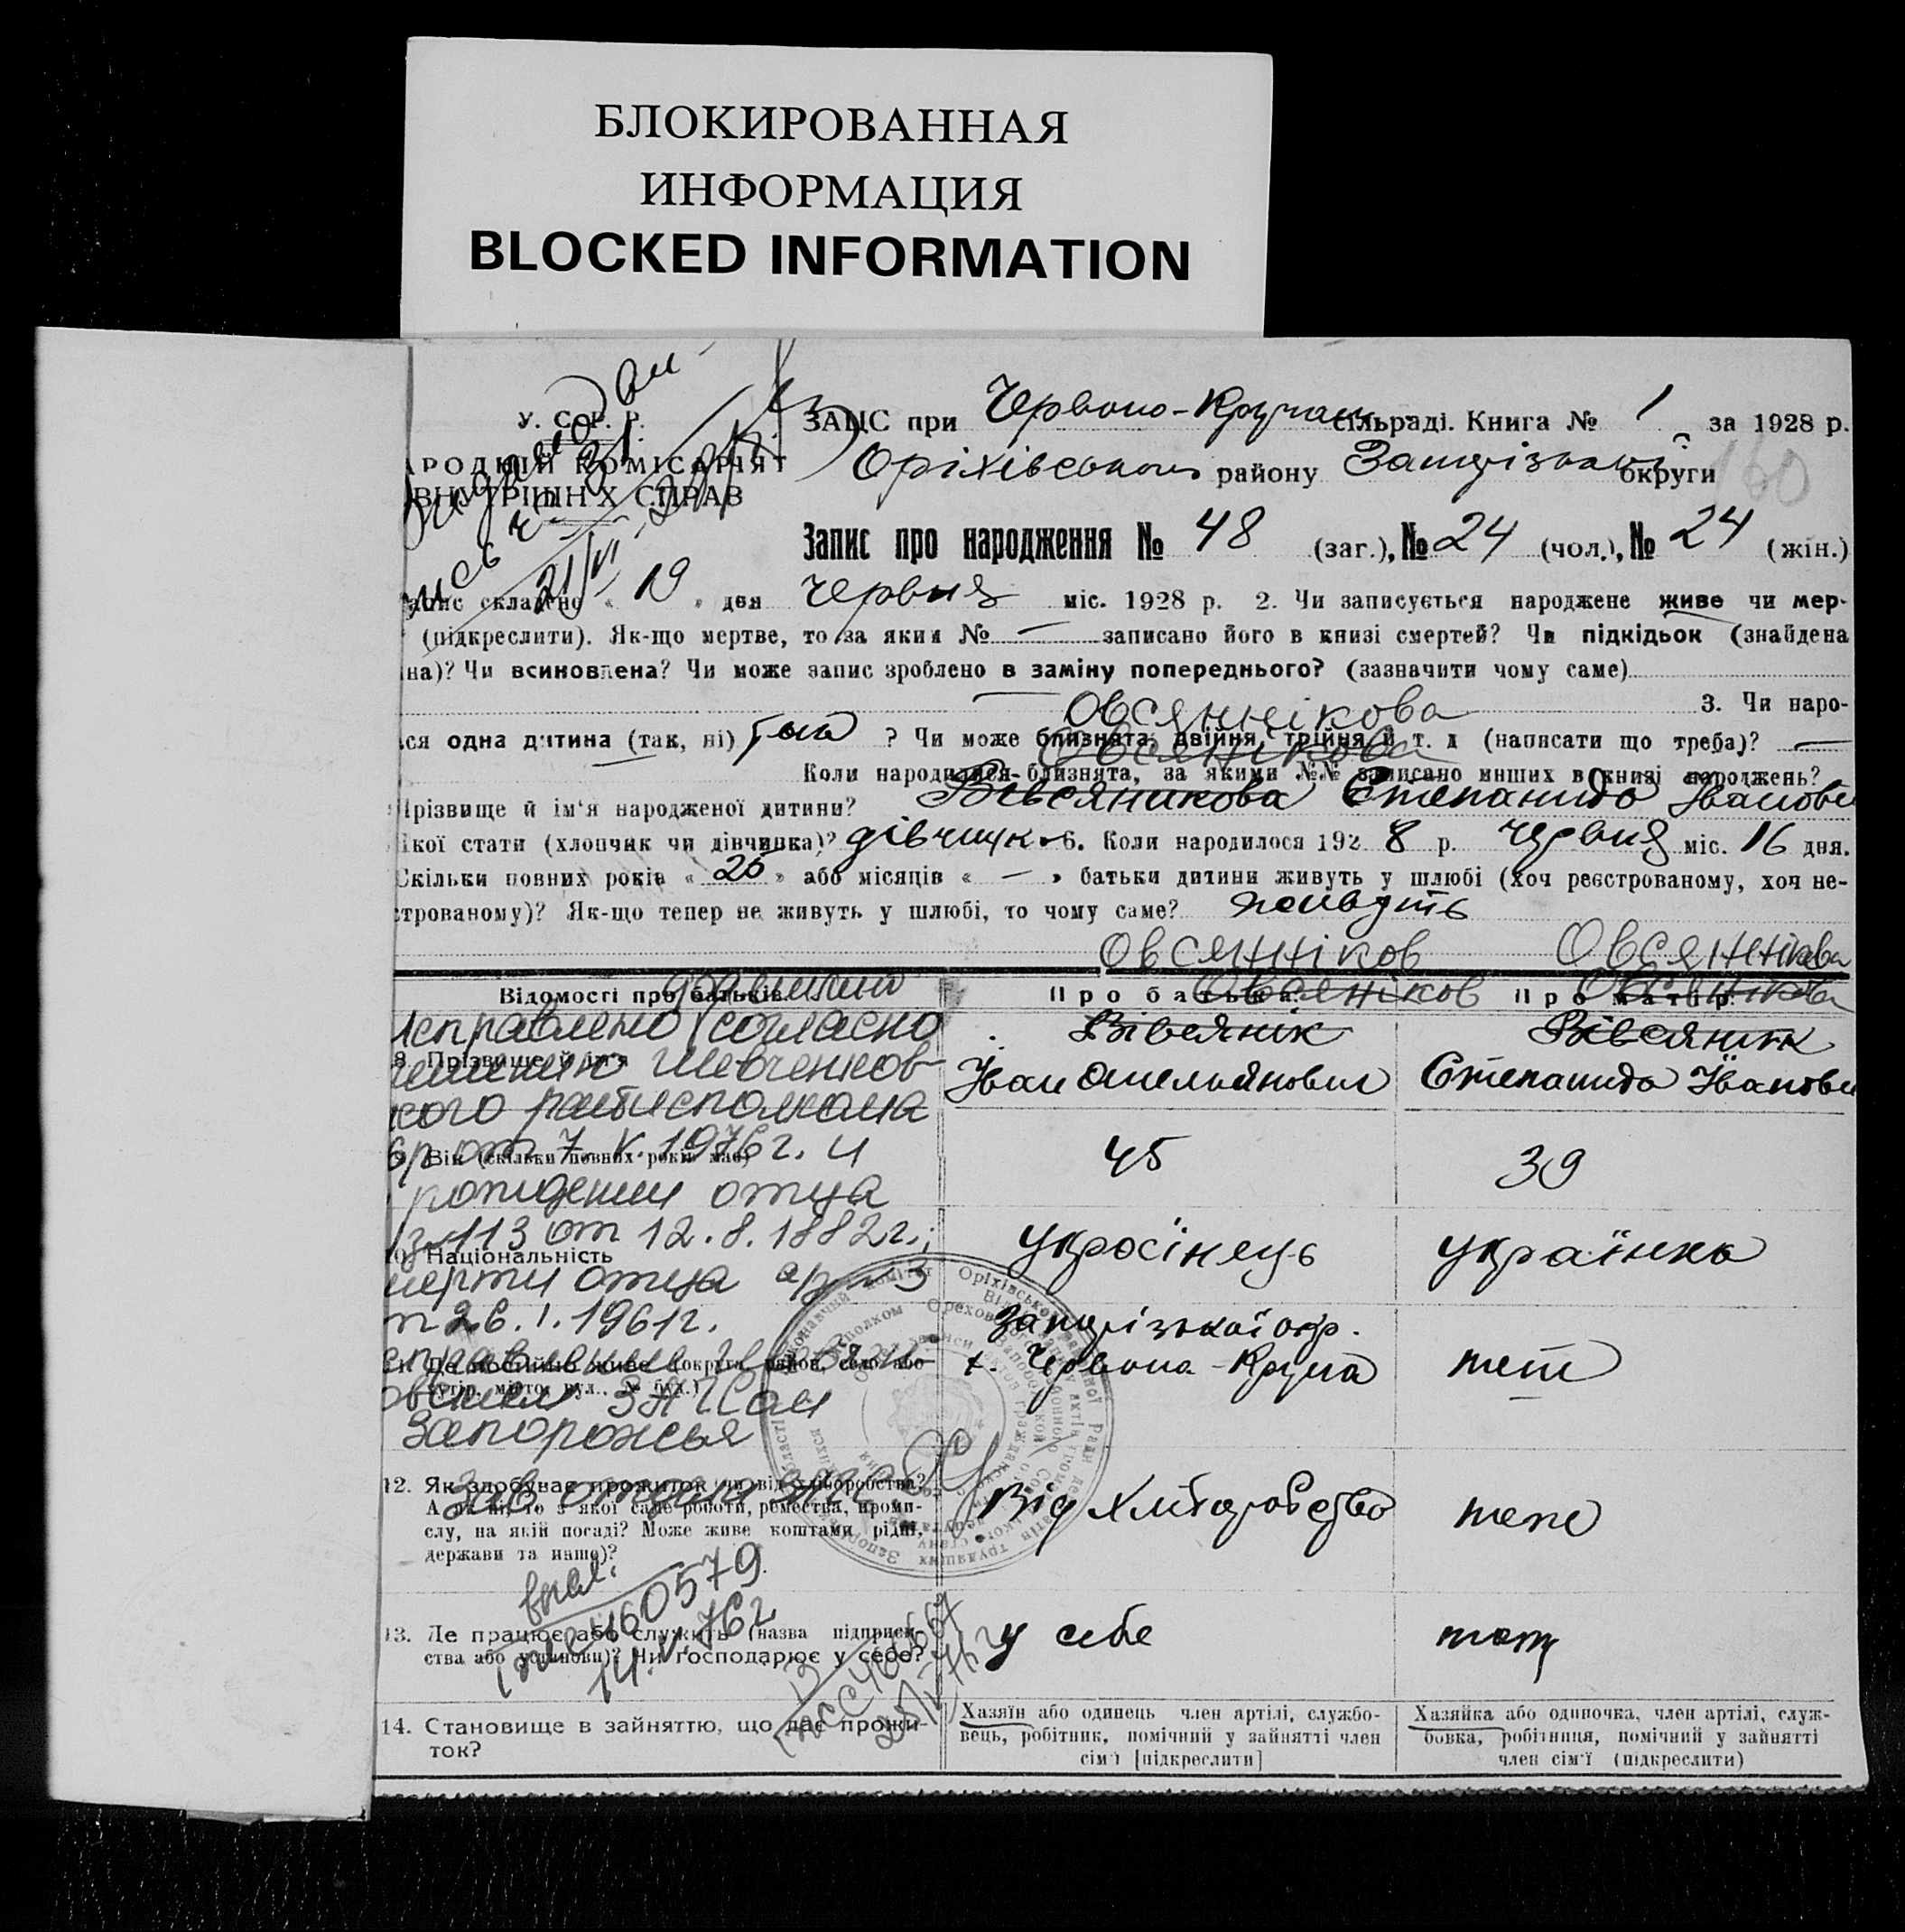 БЛОКИРОВАННАЯ
ИНФОРМАЦИЯ
BLOCKED INFORMATION
У. С. Р. Р.
АРОДНІЙ КОМІСАРІЯТ
ВНУТРІШНІХ СПРАВ
ЗАЦС при Червоно-Кручан сільраді. Книга № 1 за 1928 р.
Оріхівського району Запорізької округи
160
Запис про народження № 48 (заг.), № 24 (чол.), № 24 (жін.)
21/VI
апис складено « 19 » дня червня міс. 1928 р. 2. Чи записується народжене живе чи мер-
(підкреслити). Як-що мертве, то за яким № — записано його в книзі смертей? Чи підкідьок (знайдена
на)? Чи всиновлена? Чи може запис зроблено в заміну попереднього? (зазначити чому саме)
Овсяннікова
3. Чи наро-
ся одна дитина (так, ні) так ? Чи може близнята, двійня, трійня й т. д (написати що треба)? —
Овсянікова
Коли народилися близнята, за якими №№ записано инших в книзі народжень?
Прізвище й ім'я народженої дитини? Вівсяникова Степанида Іванов
Якої стати (хлопчик чи дівчинка)? дівчинка 6. Коли народилося 1928 р. червня міс. 16 дня.
Скільки повних років « 25 » або місяців « — » батьки дитини живуть у шлюбі (хоч реєстрованому, хоч не-
строваному)? Як-що тепер не живуть у шлюбі, то чому саме? живуть
Овсянніков Овсяннікова
Відомості про батьків Про батька: Овсяніков Про матір: Овсянікова
исправлено согласно
Вівсянік Вівсяник
8. Прізвище й ім'я
Шевченков
Іван Омельянович Степанида Іванов
кого райисполкома
от 7. V. 1976 г. и
Вік (скільки повних років має) 45 39
рождении отца
113 от 12.8.1882 г.;
10. Національність українець українка
мерти отца 3
26.1.1961 г.
Запорізької окр.
11. Де постійно живе (округа, район, село або
хутір, місто, вул., № буд.)
х. Червона-Круча теж
ЗАГСом
Запорожья
12. Як здобуває прожиток чи від хліборобства?
А як ні, то з якої саме роботи, ремества, проми-
слу, на якій посаді? Може живе коштами рідні,
держави та инше)?
Зав. отдел ЗАГС
Від хліборобства теж
460579
14.V.76 г
13. Де працює або служить (назва підприєм-
ства або установи)? Чи господарює у себе?
у себе тож
14. Становище в зайняттю, що дає прожи-
ток?
Хазяїн або одинець член артілі, службо-
вець, робітник, помічний у зайнятті член
сім'ї [підкреслити]
Хазяйка або одиночка, член артілі, служ-
бовка, робітниця, помічний у зайнятті
член сім'ї (підкреслити)